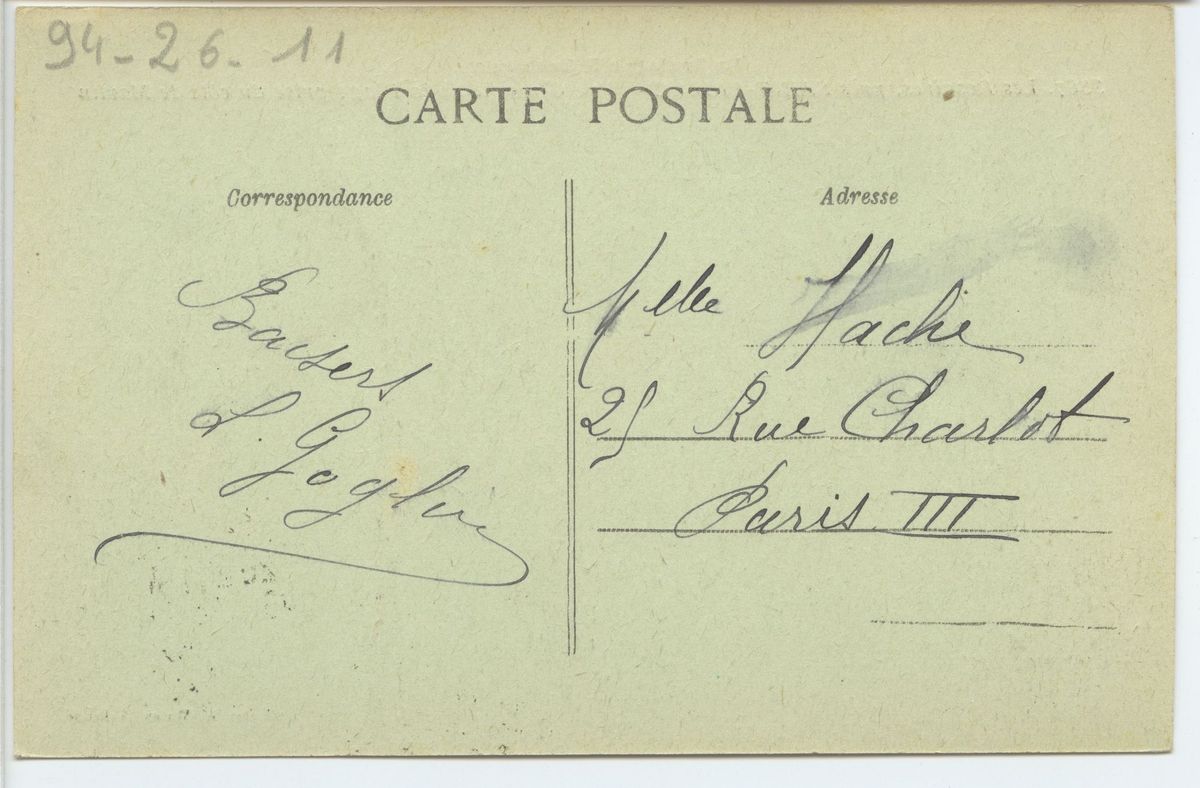 94-26-11
CARTE POSTALE
Correspondance
Baisers
L. Goglui
Adresse
Melle Hache
25 Rue Charlot
Paris III